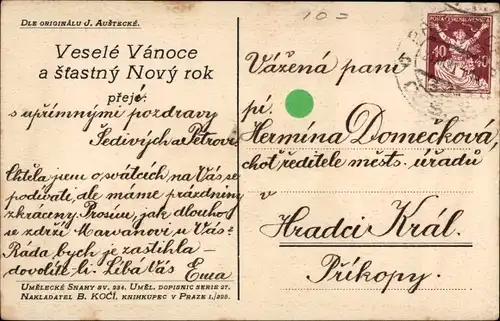 Dle originálu J. Auštecké.
Veselé Vánoce
a šťastný Nový rok
přejé
s upřímnými pozdravy
Šedivých a Petrovi
Chtěla jsem o svátcích na Vás se
podívati, ale máme prázdniny
zkráceny. Prosím, jak dlouho
se zdrží u Vás.
Ráda bych je zastihla –
dovolíte-li. Líbá Vás
Umělecké Snahy sv. 234. Uměl. dopisnic serie 27.
Nakladatel B. Kočí, knihkupec v Praze I./
10 =
POŠTA ČESKOSLOVENSKÁ
40 40
Vážená paní
pí.
Hermína Domečková,
chot ředitele městs. úřadů
v
Hradci Král.
Příkopy.